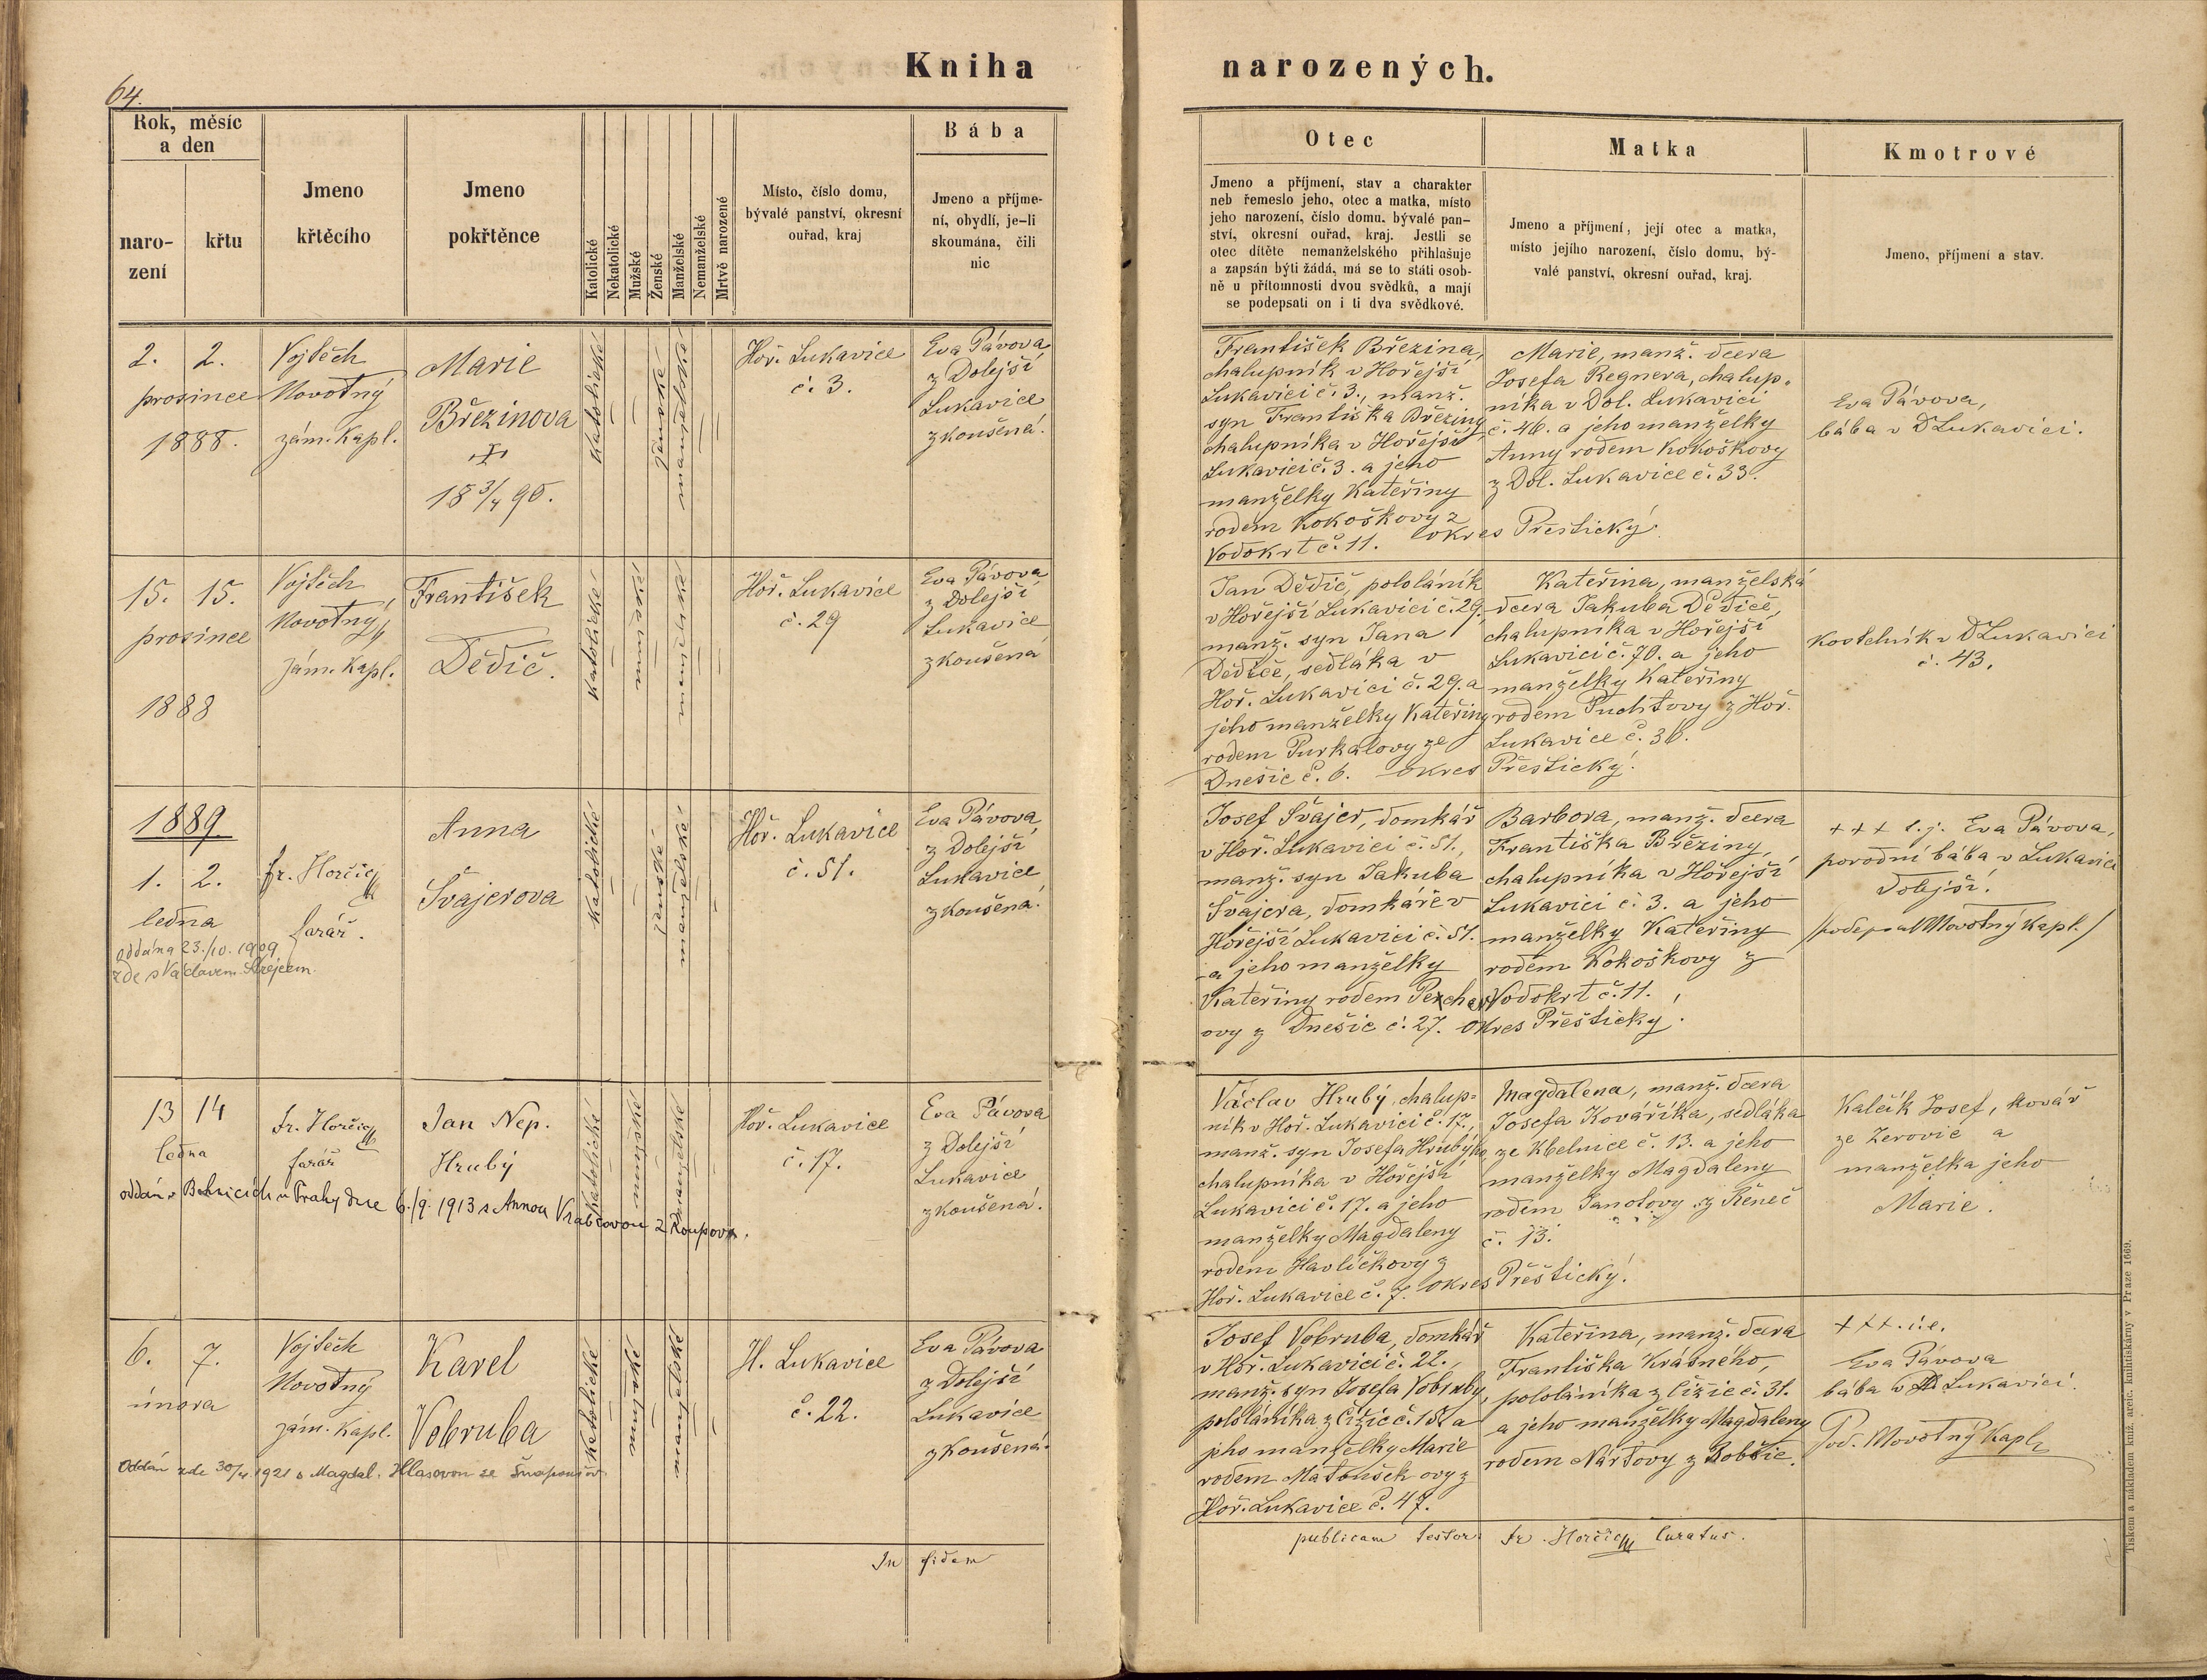 64.
Kniha narozených.
Rok, měsíc
a den
naro-
zení
křtu
Jmeno
křtěcího
Jmeno
pokřtěnce
Katolické
Nekatolické
Mužské
Ženské
Manželské
Nemanželské
Mrtvě narozené
Místo, číslo domu,
bývalé panství, okresní
ouřad, kraj
Bába
Jmeno a příjme-
ní, obydlí, je-li
skoumána, čili
nic
Otec
Jmeno a příjmení, stav a charakter
neb řemeslo jeho, otec a matka, místo
jeho narození, číslo domu, bývalé pan-
ství, okresní ouřad, kraj. Jestli se
otec dítěte nemanželského přihlašuje
a zapsán býti žádá, má se to státi osob-
ně u přítomnosti dvou svědků, a mají
se podepsati on i ti dva svědkové.
Matka
Jmeno a příjmení, její otec a matka,
místo jejího narození, číslo domu, bý-
valé panství, okresní ouřad, kraj.
Kmotrové
Jmeno, příjmení a stav.
2. 2.
prosince
1888.
Vojtěch
Novotný
zám. Kapl.
Marie
Březinova
18 3/4 90.
katolické
ženské
manželské
Hoř. Lukavice
č. 3.
Eva Pávová
z Dolejší
Lukavice
zkoušená.
František Březina,
chalupník v Hořejší
Lukavici č. 3., manž.
syn Františka Březiny
chalupníka v Hořejší
Lukavici č. 3. a jeho
manželky Kateřiny
rodem Kokoškovy z
Vodokrt č. 11. okres Přeštický.
Marie, manž. dcera
Josefa Regnera, chalup-
níka v Dol. Lukavici
č. 46. a jeho manželky
Anny rodem Kokoškovy
z Dol. Lukavice č. 33.
Eva Pávova,
bába v DLukavici.
15. 15.
prosince
1888
Vojtěch
Novotný
zám. Kapl.
František
Dědič.
katolické
manželské
Hoř. Lukavice
č. 29
Eva Pávova
z Dolejší
Lukavice
zkoušená
Jan Dědič, pololáník
v Hořejší Lukavici č. 29.,
manž. syn Jana
Dědiče, sedláka v
Hoř. Lukavici č. 29. a
jeho manželky Kateřiny
rodem Purkatovy ze
Dnešic č. 6. okres Přeštický.
Kateřina, manželská
dcera Jakuba Dědiče,
chalupníka v Hořejší
Lukavici č. 70. a jeho
manželky Kateřiny
rodem Puchtovy z Hoř.
Lukavice č. 36.
Kostelník v DLukavici
č. 43.
1889
1. 2.
ledna
oddána 23./10. 1909
zde s Václavem
fr. Horčic
farář.
Anna
Švajerova
katolické
ženské
manželské
Hoř. Lukavice
č. 51.
Eva Pávova
z Dolejší
Lukavice
zkoušená.
Josef Švajer, domkář
v Hoř. Lukavici č. 51.,
manž. syn Jakuba
Švajera, domkáře v
Hořejší Lukavici č. 51.
a jeho manželky
Kateřiny rodem
ovy z Dnešic č. 27. okres Přeštický.
Barbora, manž. dcera
Františka Březiny,
chalupníka v Hořejší
Lukavici č. 3. a jeho
manželky Kateřiny
rodem Kokoškovy z
Vodokrt č. 11.
+++ t.j. Eva Pávova,
porodní bába v Lukavici
Dolejší.
/podepsal Novotný Kapl./
13 14
ledna
fr. Horčic
farář
Jan Nep.
Hrubý
oddán v Bohnicích u Prahy dne 6./9. 1913 s Annou Vrabcovou z Roupova.
katolické
mužské
manželské
Hoř. Lukavice
č. 17.
Eva Pávova
z Dolejší
Lukavice
zkoušená.
Václav Hrubý, chalup-
ník v Hoř. Lukavici č. 17.,
manž. syn Josefa Hrubýho
chalupníka v Hořejší
Lukavici č. 17. a jeho
manželky Magdaleny
rodem Havlíčkovy z
Hoř. Lukavice č. 7. okres Přeštický.
Magdalena, manž. dcera
Josefa Kováříka, sedláka
ze Kbelnice č. 13. a jeho
manželky Magdaleny
rodem Janotovy z Řeneč
č. 13.
Kalčík Josef, kovář
ze Zerovic a
manželka jeho
Marie.
6. 7.
února
Vojtěch
Novotný
zám. Kapl.
Karel
Vobruba
Oddán zde 30/4 1921 s Magdal. Hlasovou ze
katolické
mužské
manželské
H. Lukavice
č. 22.
Eva Pávova
z Dolejší
Lukavice
zkoušená.
Josef Vobruba, domkář
v Hoř. Lukavici č. 22.,
manž. syn Josefa Vobruby,
pololáníka z Čížic č. 18. a
jeho manželky Marie
rodem Matoušek ovy z
Hoř. Lukavice č. 47.
Kateřina, manž. dcera
Františka Krásného,
pololáníka z Čížic č. 31.
a jeho manželky Magdaleny
rodem Nártovy z Robčic.
+++. i.e.
Eva Pávova
bába v D Lukavici.
Pod. Novotný Kapl.
In fidem publicam testor. Fr. Horčic Curatus.
Tiskem a nákladem kníž. arcib. knihtiskárny v Praze 1669.